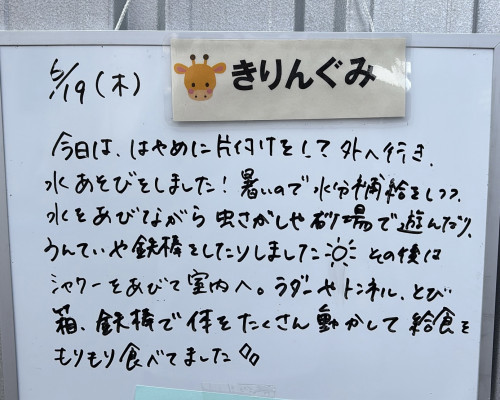 きりんぐみ
6/19(木)
今日は、はやめに片付けをして外へ行き、
水あそびをしました!暑いので水分補給をしつつ、
水をあびながら虫さがしや砂場で遊んだり、
うんていや鉄棒をしたりしました その後は
シャワーをあびて室内へ。ラダーやトンネル、とび
箱、鉄棒で体をたくさん動かして給食を
もりもり食べてました